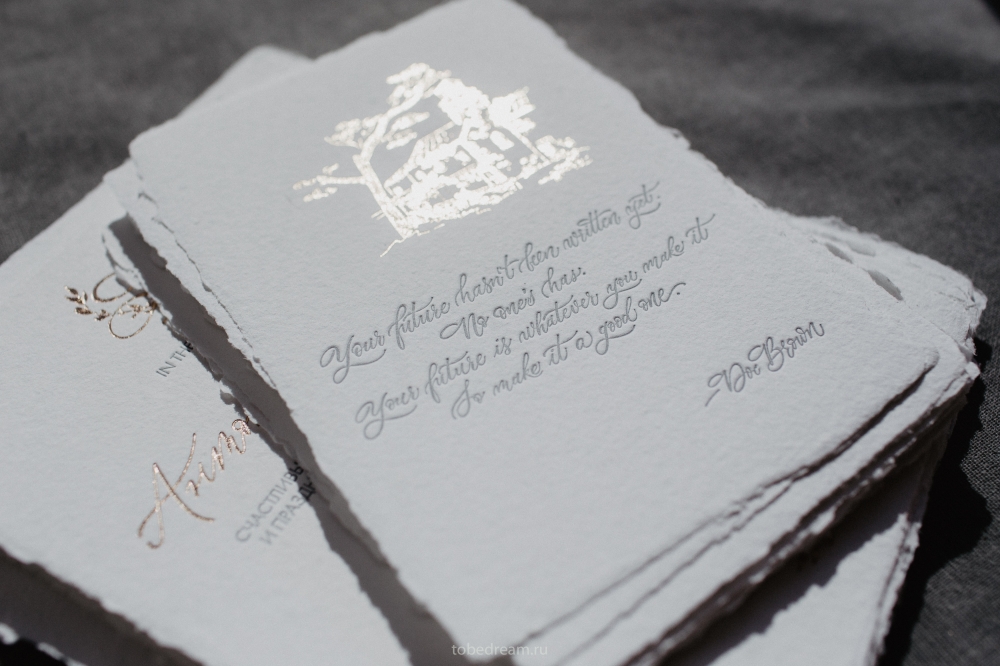 Your future hasn't been written yet.
No one's has.
Your future is whatever you make it
So make it a good one.
-Doc Brown
IN THE
СЧАСТЛИВЫ
И ПРАЗД
tobedream.ru